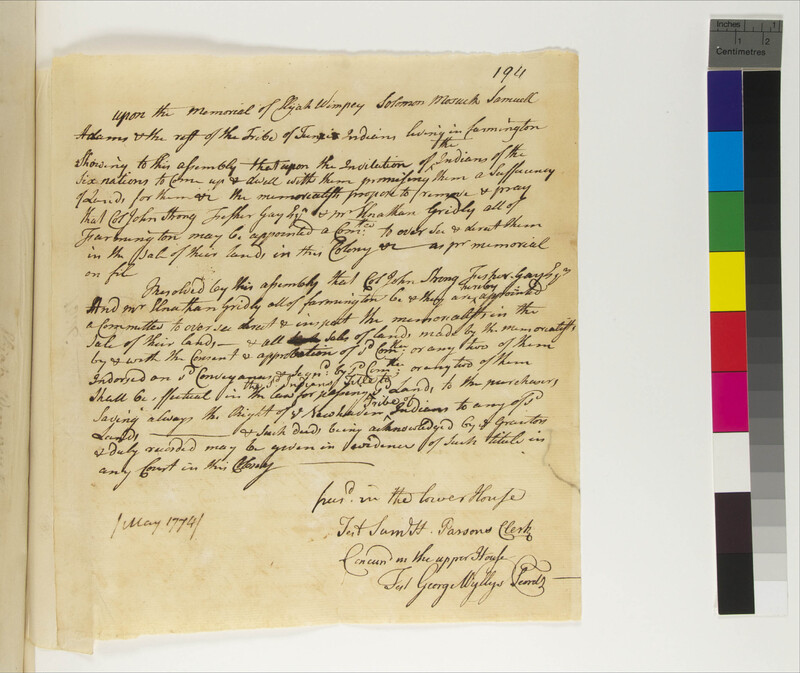 194
upon the Memorial of Elijah Wimpey Solomon Mosuck Samuell
Adams & the rest of the Tribe of Tunxis Indians living in Farmington
Shewing to this assembly that upon the Invitation of the Indians of the
Six nations to Come up & dwell with them promising them a Suffuciency
of Lands for them &c the memorialists propose to remove & pray
that Col John Strong Fisher Gay Esqr & mr Elnathan Gridly all of
Farmington may be appointed a Comtee to over see & direct them
in the Sal of their lands in this Colony &c as pr memorial
on file
Resolved by this assembly that Col John Strong Fisher Gay Esqr
And mr Elnathan Gridly all of farmington be & they are hereby appointed
a Committee to over see direct & inspect the memorialists in the
Sale of their lands & all Sales of lands made by the memorialists
by & with the Consent & approbation of sd Comtee or any two of them
Indorsed on sd Conveyances & Signd by sd Comtee or any two of them
Shall be effectual in the law for passing the sd Indians Title to sd Lands to the purchasers
Saving always the Right of Newhaven Tribe of Indians to any of sd
Lands & Such deeds being acknowledged by Grantors
& duly recorded may be given in evidence of Such titule in
any Court in this Colony
passd in the lower House
Test Saml H. Parsons Clerk
[May 1774]
Concurd in the upper House
Test George Wyllys Secretry
Inches 1
1 2
Centimetres